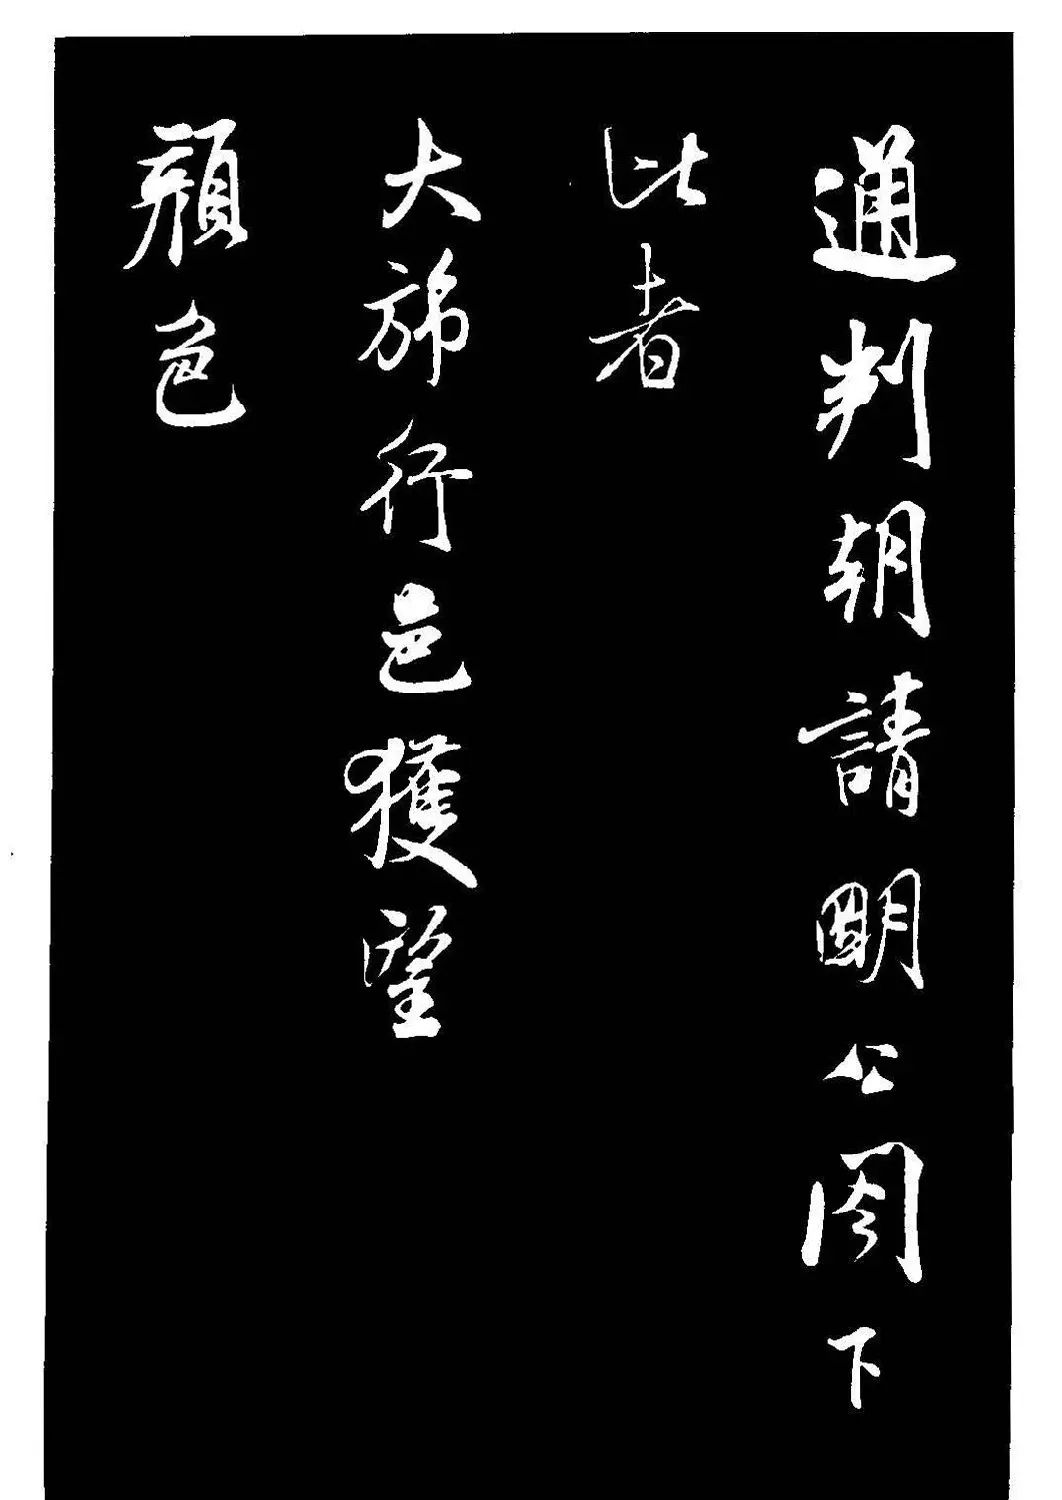 通判朝請明公閣下
此者
大旆行色獲望
顏色